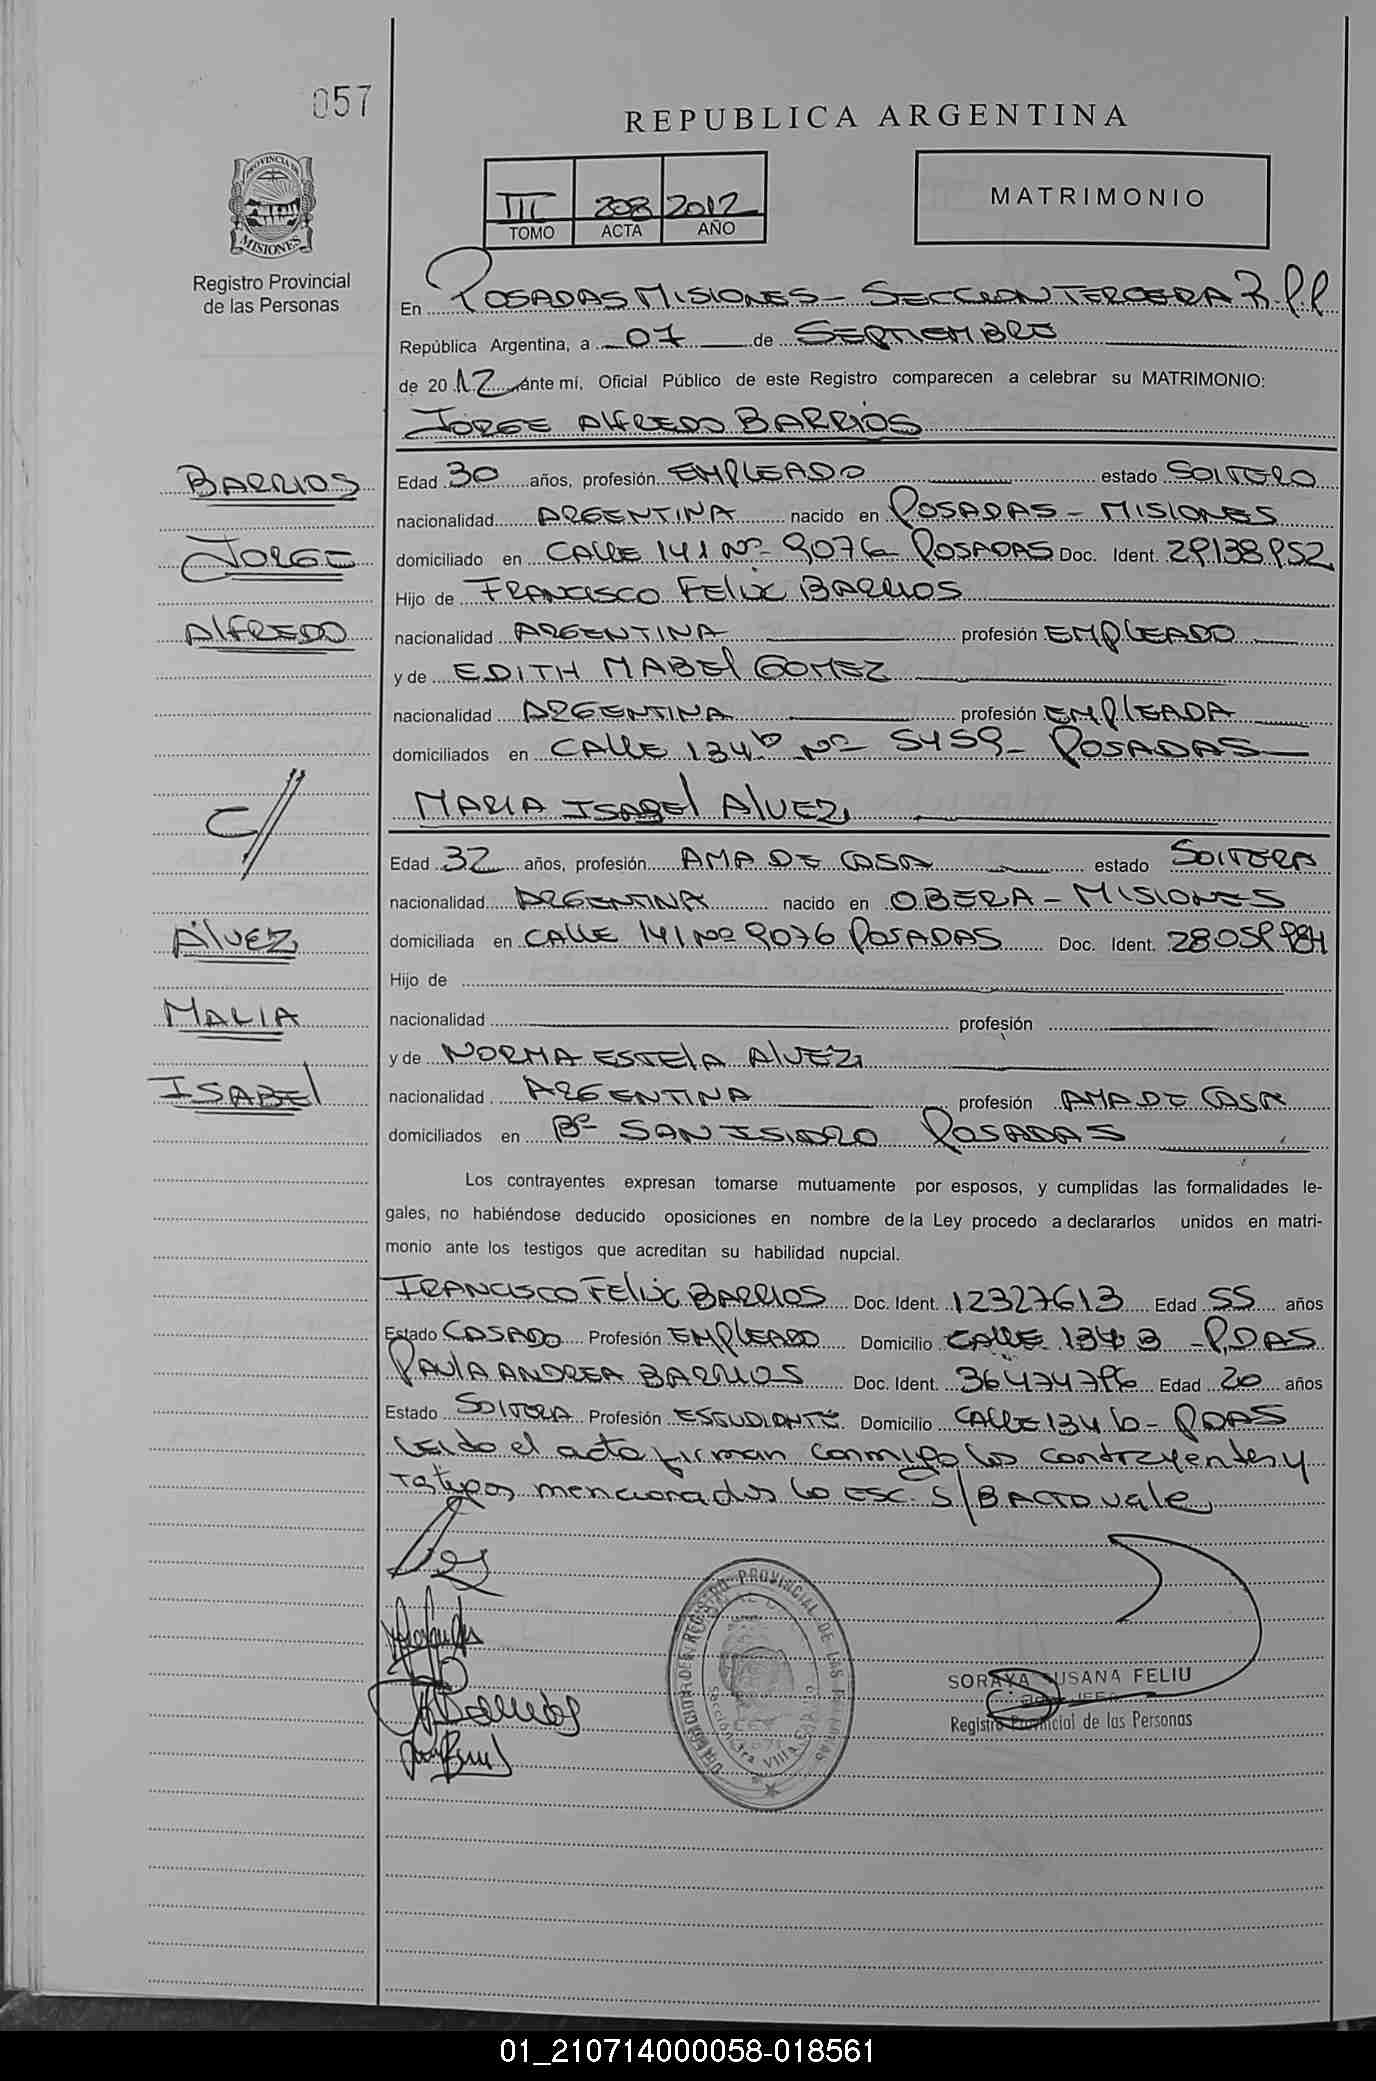 057
REPUBLICA ARGENTINA
PROVINCIA DE
MISIONES
Registro Provincial
de las Personas
III 208 2012
TOMO ACTA AÑO
MATRIMONIO
En POSADAS MISIONES - SECCION TERCERA R.P.P
República Argentina, a 07 de SEPTIEMBRE
de 2012 ante mí, Oficial Público de este Registro comparecen a celebrar su MATRIMONIO:
JORGE ALFREDO BARRIOS
BARRIOS
JORGE
ALFREDO
C/
ALVEZ
MARIA
ISABEL
Edad 30 años, profesión EMPLEADO estado SOLTERO
nacionalidad ARGENTINA nacido en POSADAS - MISIONES
domiciliado en CALLE 141 Nº 9076 POSADAS Doc. Ident. 29138952
Hijo de FRANCISCO FELIX BARRIOS
nacionalidad ARGENTINA profesión EMPLEADO
y de EDITH MABEL GOMEZ
nacionalidad ARGENTINA profesión EMPLEADA
domiciliados en CALLE 134b Nº 5459 - POSADAS
MARIA ISABEL ALVEZ
Edad 32 años, profesión AMA DE CASA estado SOLTERA
nacionalidad ARGENTINA nacido en OBERA - MISIONES
domiciliada en CALLE 141 Nº 9076 POSADAS Doc. Ident. 28.059.984
Hijo de
nacionalidad profesión
y de NORMA ESTELA ALVEZ
nacionalidad ARGENTINA profesión AMA DE CASA
domiciliados en Bº SAN ISIDRO POSADAS
Los contrayentes expresan tomarse mutuamente por esposos, y cumplidas las formalidades le-
gales, no habiéndose deducido oposiciones en nombre de la Ley procedo a declararlos unidos en matri-
monio ante los testigos que acreditan su habilidad nupcial.
FRANCISCO FELIX BARRIOS Doc. Ident. 12327613 Edad 55 años
Estado CASADO Profesión EMPLEADO Domicilio CALLE 134 B - PDAS
PAULA ANDREA BARRIOS Doc. Ident. 36474796 Edad 20 años
Estado SOLTERA Profesión ESTUDIANTE Domicilio CALLE 134 b - PDAS
Leido el acta firman conmigo los contrayentes y
Testigos mencionados lo ESC. S/BACTO vale
DIRECCION DEL REGISTRO PROVINCIAL DE LAS PERSONAS
SORAYA SUSANA FELIU
JEFA
Registro Provincial de las Personas
01_210714000058-018561